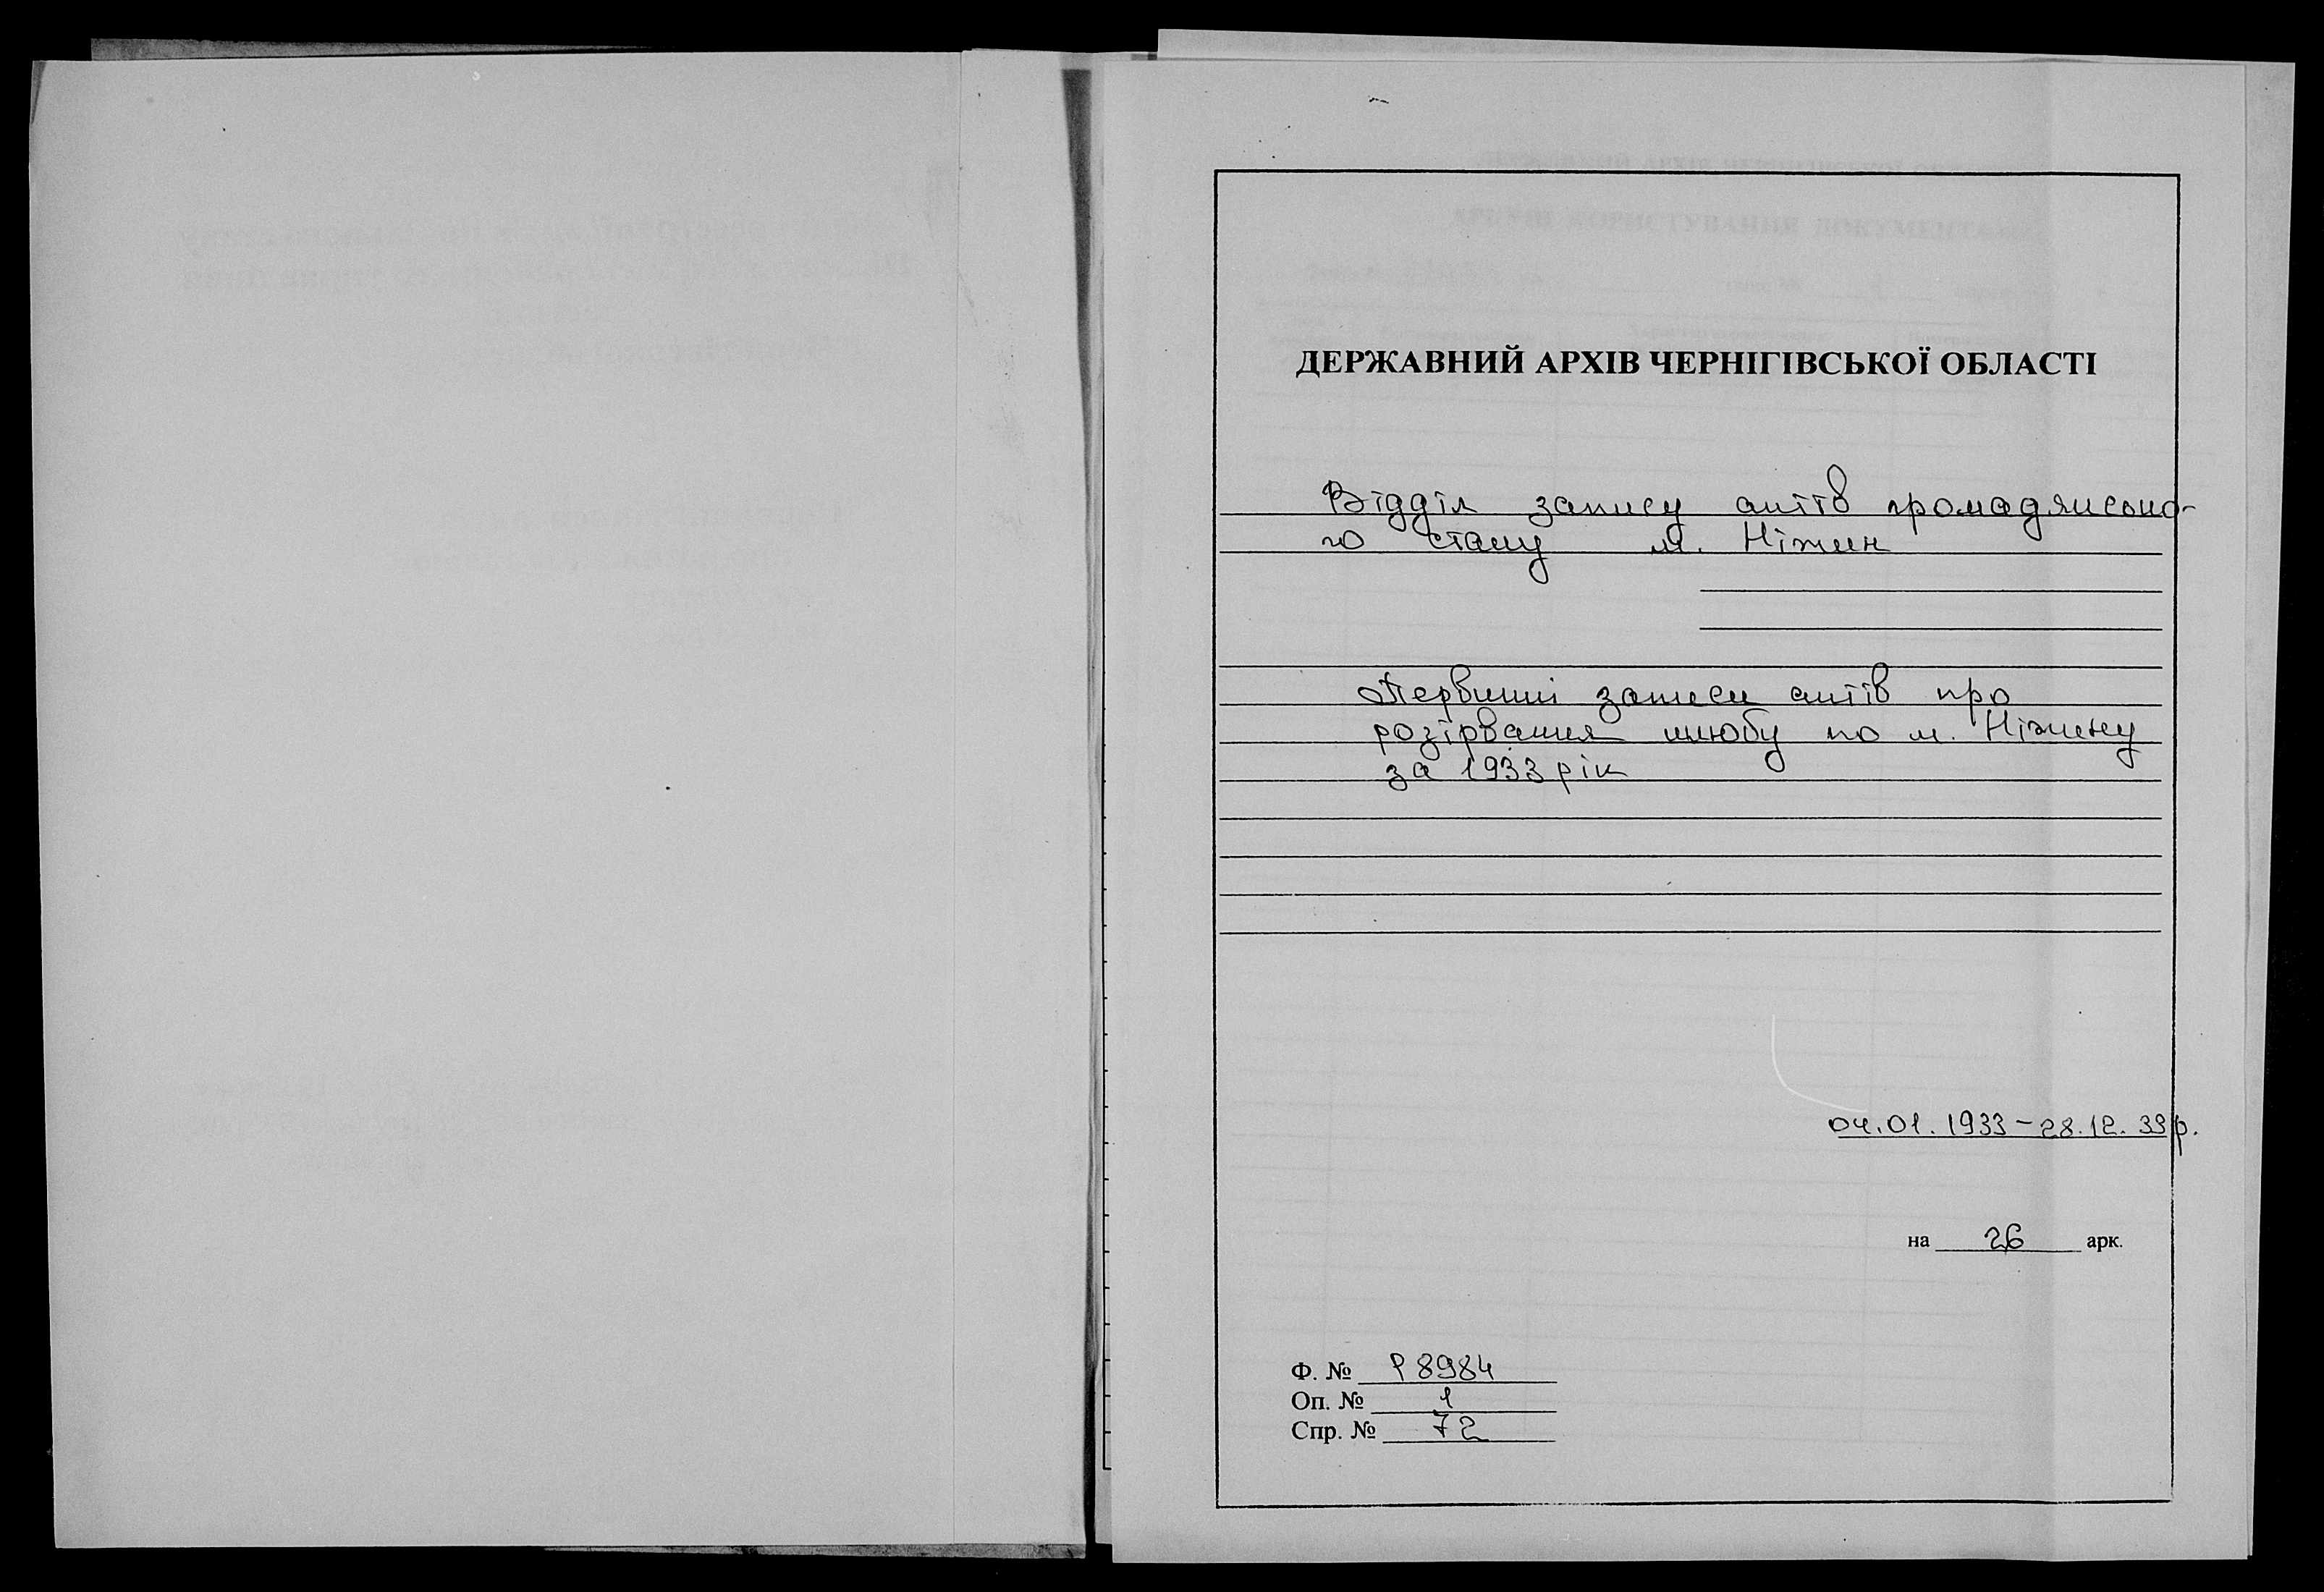 ДЕРЖАВНИЙ АРХІВ ЧЕРНІГІВСЬКОЇ ОБЛАСТІ
Відділ запису актів громадянсько-
го стану м. Ніжин
Первинні записи актів про
розірвання шлюбу по м. Ніжину
за 1933 рік
04.01.1933 – 28.12.33 р.
на 26 арк.
Ф. № Р 8984
Оп. № 1
Спр. № 72